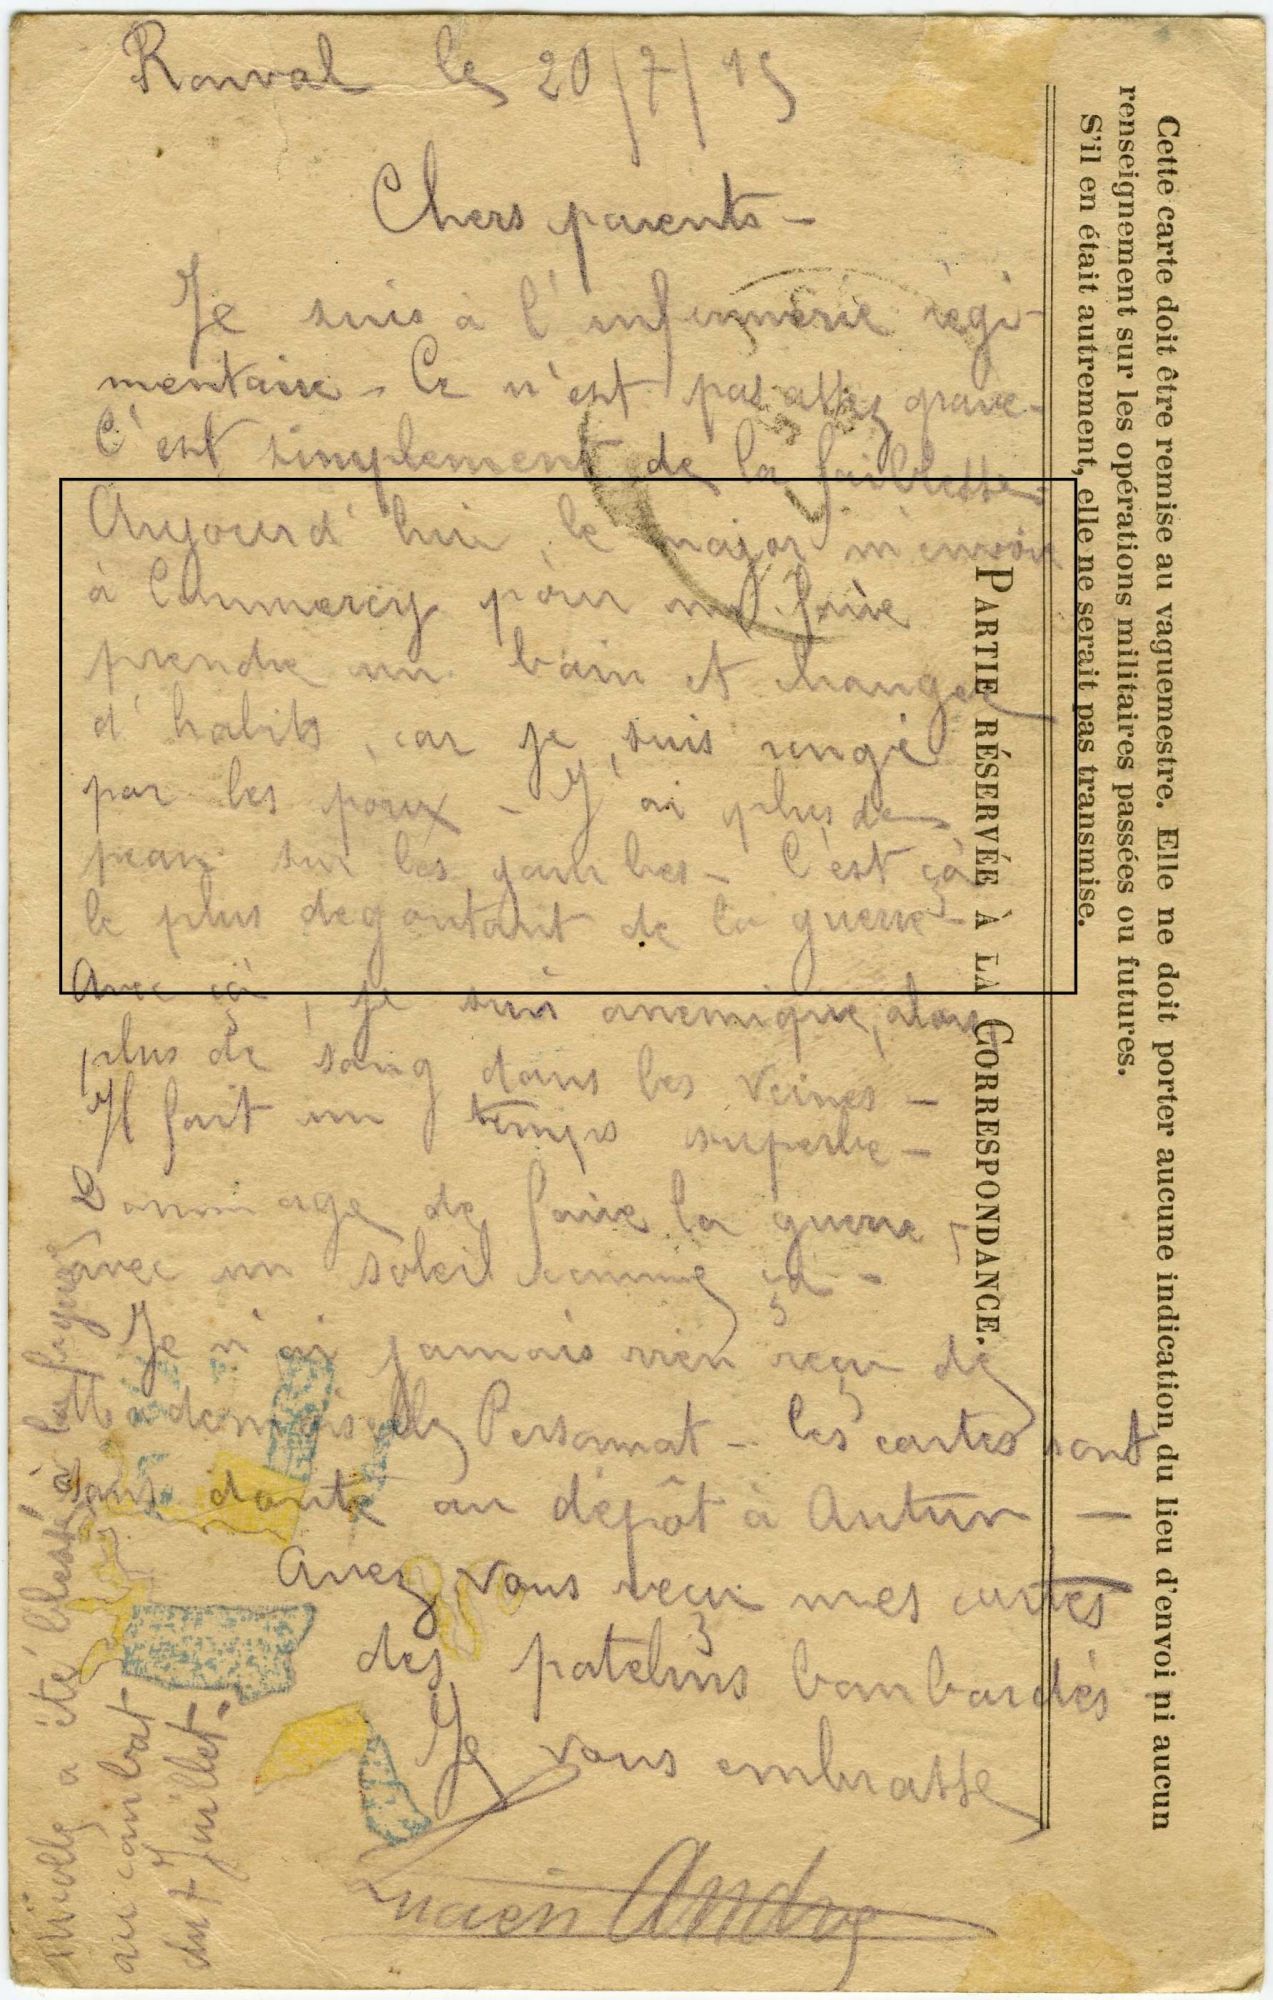 Ronval le 20/7/15
Chers parents -
Je suis à l'infirmerie régi-
mentaire - Ce n'est pas assez grave -
C'est simplement de la faiblesse.
Aujourd'hui, le major m'envoie
à Commercy pour me faire
prendre un bain et changer
d'habits, car je suis rongé
par les poux - J'ai plus de
peau sur les jambes - C'est ça
le plus dégoutant de la guerre -
Avec ça, je suis anemique, alors
plus de sang dans les veines -
Il fait un temps superbe -
Dommage de faire la guerre
avec un soleil comme ça -
Je n'ai jamais rien reçu de
Mademoiselle Personnat - les cartes sont
sans doute au dépôt à Autun -
Avez vous reçu mes cartes
des patelins bombardés
Je vous embrasse
Lucien André
a été blessé à
au combat
du 7 Juillet.
Cette carte doit être remise au vaguemestre. Elle ne doit porter aucune indication du lieu d'envoi ni aucun
renseignement sur les opérations militaires passées ou futures.
S'il en était autrement, elle ne serait pas transmise.
PARTIE RÉSERVÉE À LA CORRESPONDANCE.